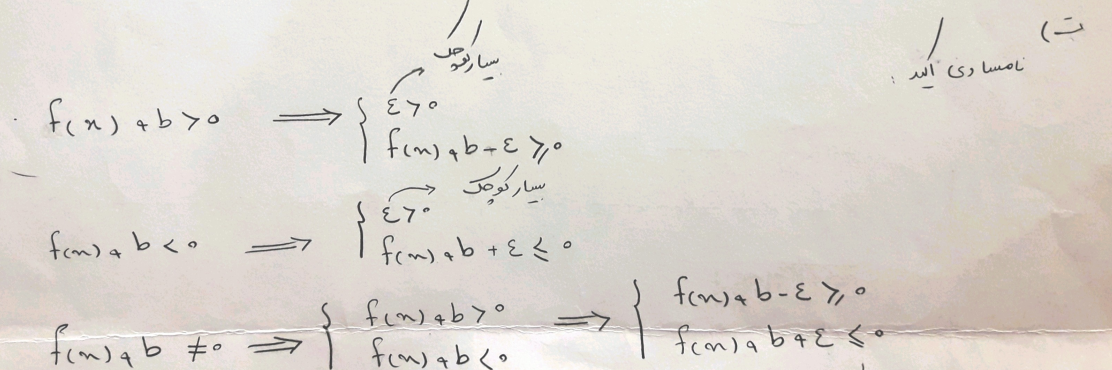 ت)
نامساوی اکید :
بسیار کوچک
f(x) + b > 0 ⟹ { ε > 0
f(x) + b - ε ≥ 0
بسیار کوچک
f(x) + b < 0 ⟹ { ε > 0
f(x) + b + ε ≤ 0
f(x) + b ≠ 0 ⟹ { f(x) + b > 0 ⟹ { f(x) + b - ε ≥ 0
f(x) + b < 0 f(x) + b + ε ≤ 0